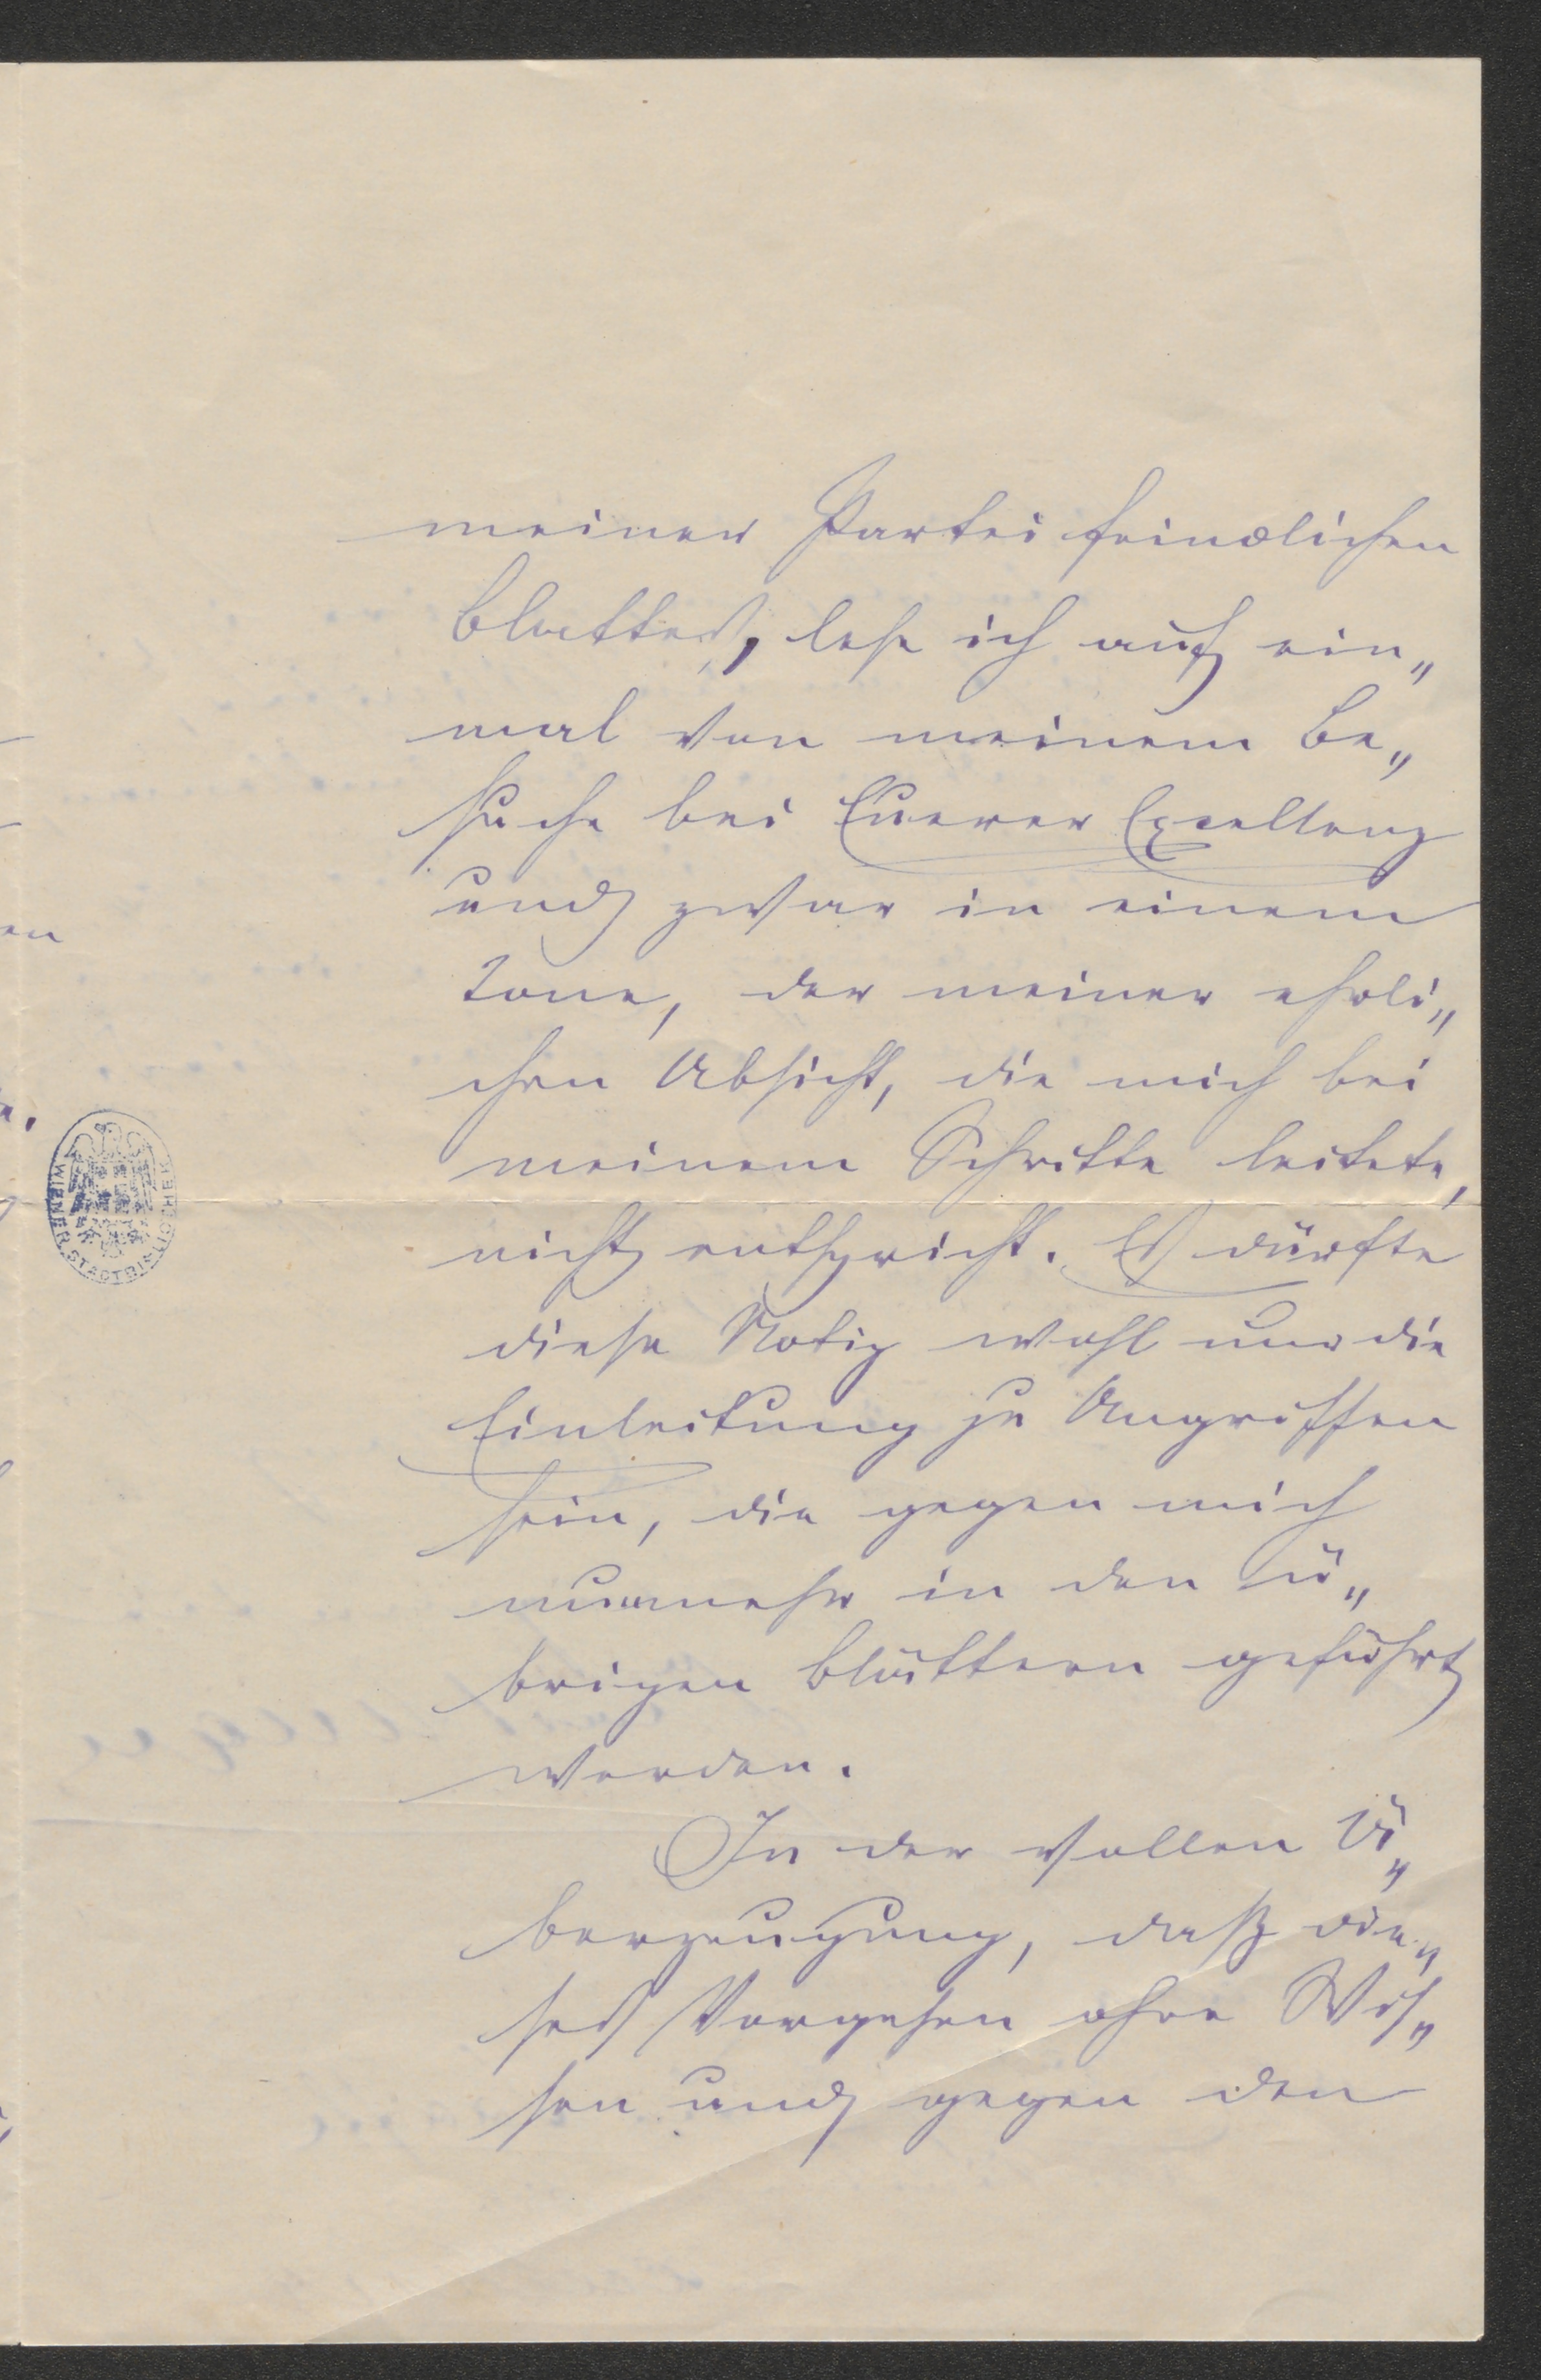 meiner Partei feindlichen
Blattes, lese ich auf ein„
mal von meinem Be„
suche bei Euerer Excellenz
und zwar in einem
Tone, der meiner ehrli„
chen Absicht, die mich bei
meinem Schritte leitete,
nicht entspricht. Es dürfte
diese Notiz wohl nur die
Einleitung zu Angriffen
sein, die gegen mich
nunmehr in den ü„
brigen Blättern geführt
werden.
In der vollen Ü„
berzeugung, daß die„
ses Vorgehen ohne Wis„
sen und gegen den
WIENER STADTBIBLIOTHEK